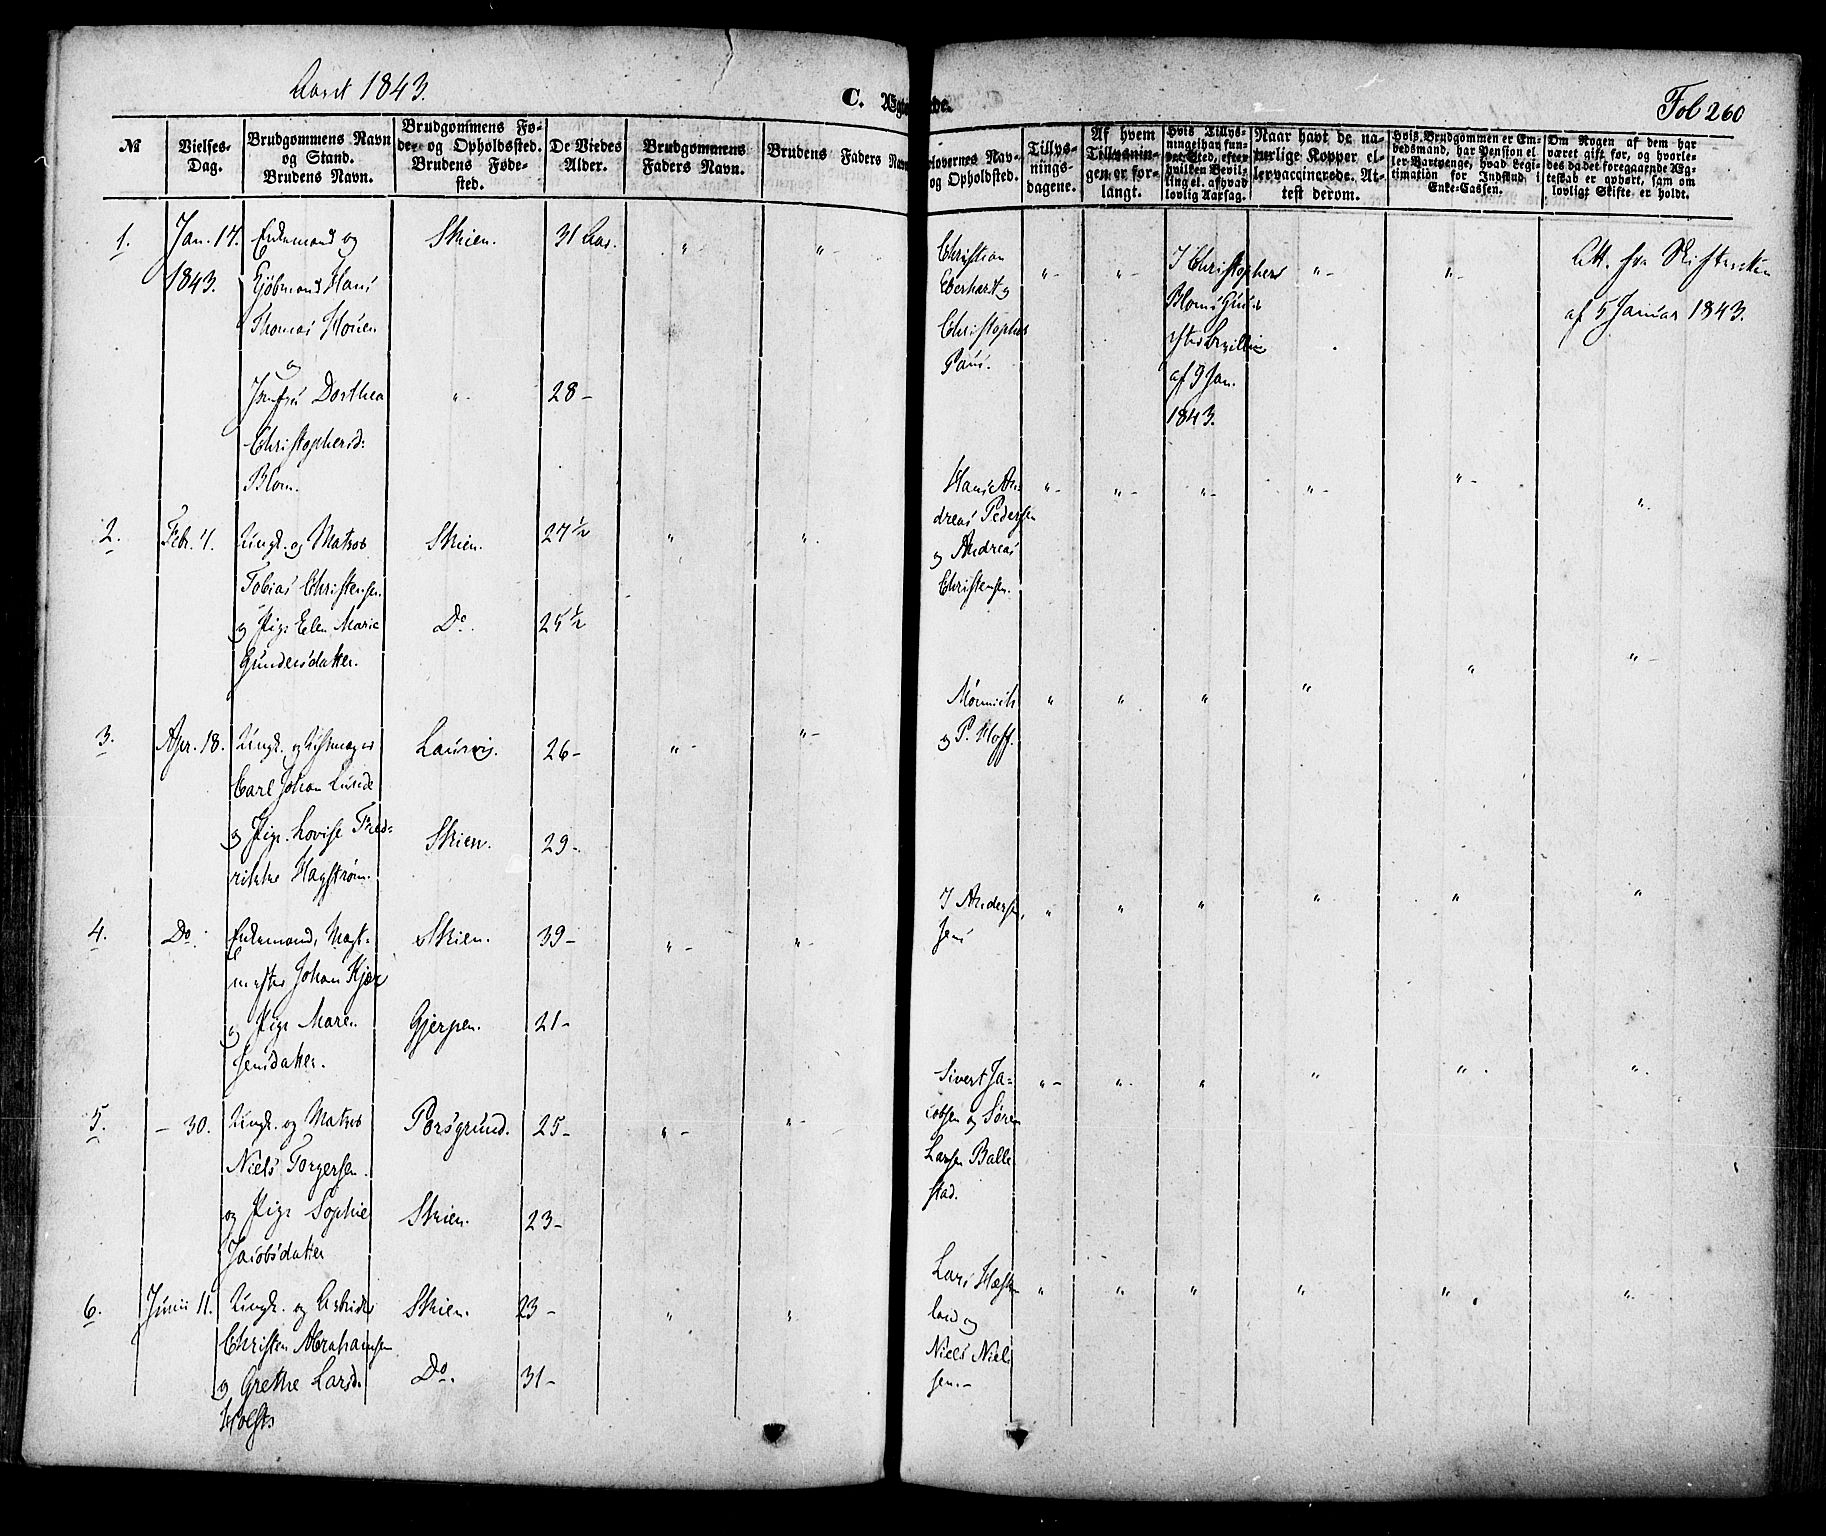 Aaret 1843.
C. Ægteviede.
Fol 260
№
Vielses-
Dag.
Brudgommens Navn
og Stand.
Brudens Navn.
Brudgommens Fø-
de- og Opholdssted.
Brudens Føde-
sted.
De Viedes
Alder.
Brudgommens
Faders Navn.
Brudens Faders Navn
Forlovernes Nav-
og Opholdsted.
Tillys-
nings-
dagene.
Af hvem
Tillysnin-
gen er for-
langt.
Hvis Tillys-
ningel har fun-
det Sted, efter
hvilken Bevil-
ling el. afhvad
lovlig Aarsag.
Naar havt de na-
turlige Kopper el-
ler vaccinerede. At-
test derom.
Hvis Brudgommen er Em-
bedsmand, har Pension el-
ler Vartpenge, hvad Legi-
timation for Indskud i
Enke-Cassen.
Om Nogen af dem har
været gift før, og hvorle-
des da det foregaaende Æg-
teskab er ophørt, sam om
lovligt Skifte er holdt.
1.
Jan. 14.
1843.
Enkemand og
Kjøbmand Hans
Thomas Houen
og
Jomfru Dorthea
Christophersd:
Blom.
Skien.
"
31 Aar.
28 -
" "-
Christian
Eberhardt og
Christopher
Paus.
"- "-
I Christopher
Bloms Huus
efter Bevilling
af 9 Jan.
1843.
"- "-
Att. fra Skifteretten
af 5 Januar 1843.
2.
Febr. 4.
Ungk. og Matros
Tobias Christensen
og Pige Elen Marie
Gundersdatter.
Skien.
Do.
27 1/2
25 1/2
" "
Hans An-
dreas Pedersen
og Andreas
Christensen.
"- "- "- "- "- "
3.
Apr. 18.
Ungk. og
Carl Johan Lunde
og Pige Lovise Fred-
rikke Hagstrøm.
Laurvig.
Skien.
26 -
29 -
"- "-
Mønnich
og P. Hoff.
" " " " " "-
4.
Do.
Enkemand, Vagt-
mester Johan Kjær
og Pige Maren
Jensdatter.
Skien.
Gjerpen.
39 -
21 -
"- "-
J Andersen,
Jens
" " " " " "
5.
- 30.
Ungk. og Matros
Niels Torgersen
og Pige Sophie
Jacobsdatter
Porsgrund.
Skien.
25 -
23 -
"- "-
Sivert Ja-
cobsen og Søren
Larsen Balle
stad.
"- " " " " "
6.
Junii 11.
Ungk. og Arbeider
Christen Abrahamsen
og Grethe Larsd.
Holfts
Skien.
Do.
23 -
31 -
" "
Lars Hæst
land og
Niels Niel
sen. -
" " " " " "